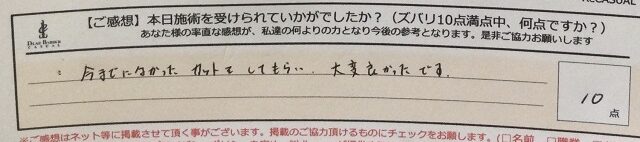 【ご感想】本日施術を受けられていかがでしたか？（ズバリ10点満点中、何点ですか？）
あなた様の率直な感想が、私達の何よりの力となり今後の参考となります。是非ご協力お願いします
今までになかった カットをしてもらい、大変良かったです。
10
点
※ご感想はネット等に掲載させて頂く事がございます。掲載のご協力頂けるものにチェックをお願します。(□名前